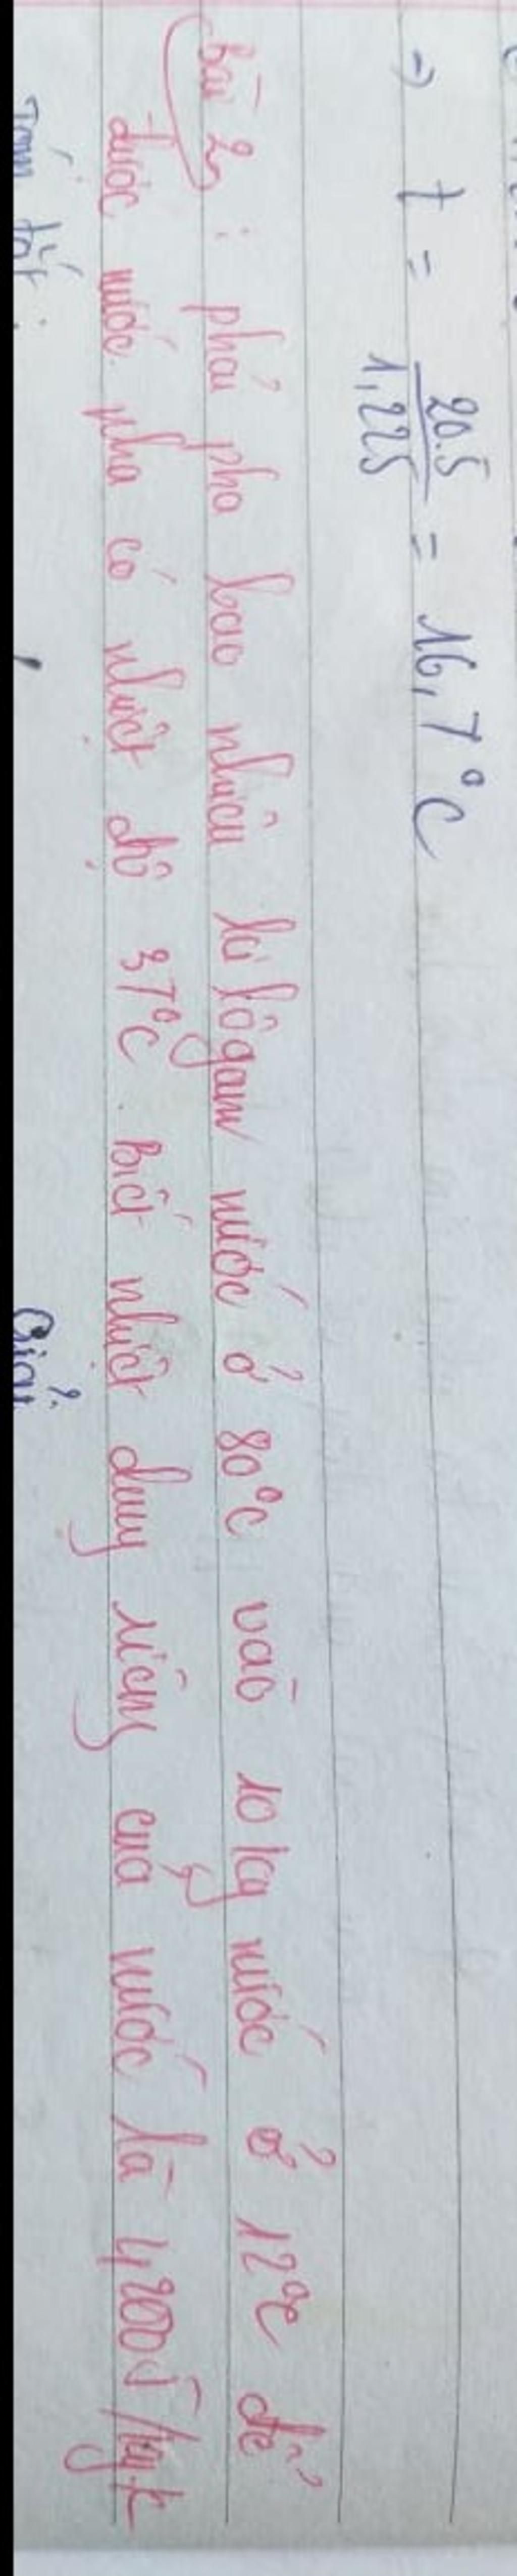 → t = 20.5 / 1,225 = 16,7°C
bài 2 : phải pha bao nhiêu ki lôgam nước ở 80°C vào 10 kg nước ở 12°C để
được nước pha có nhiệt độ 37°C. Biết nhiệt dung riêng của nước là 4200J/kg.k
Tóm tắt :
Giải